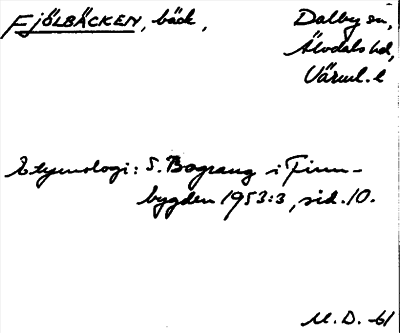 FJÖLBÄCKEN, bäck, Dalby sn,
Älvdals hd,
Värml. l
Etymologi: S. Bograng i Finn-
bygden 1953:3, sid. 10.
M. D. -61